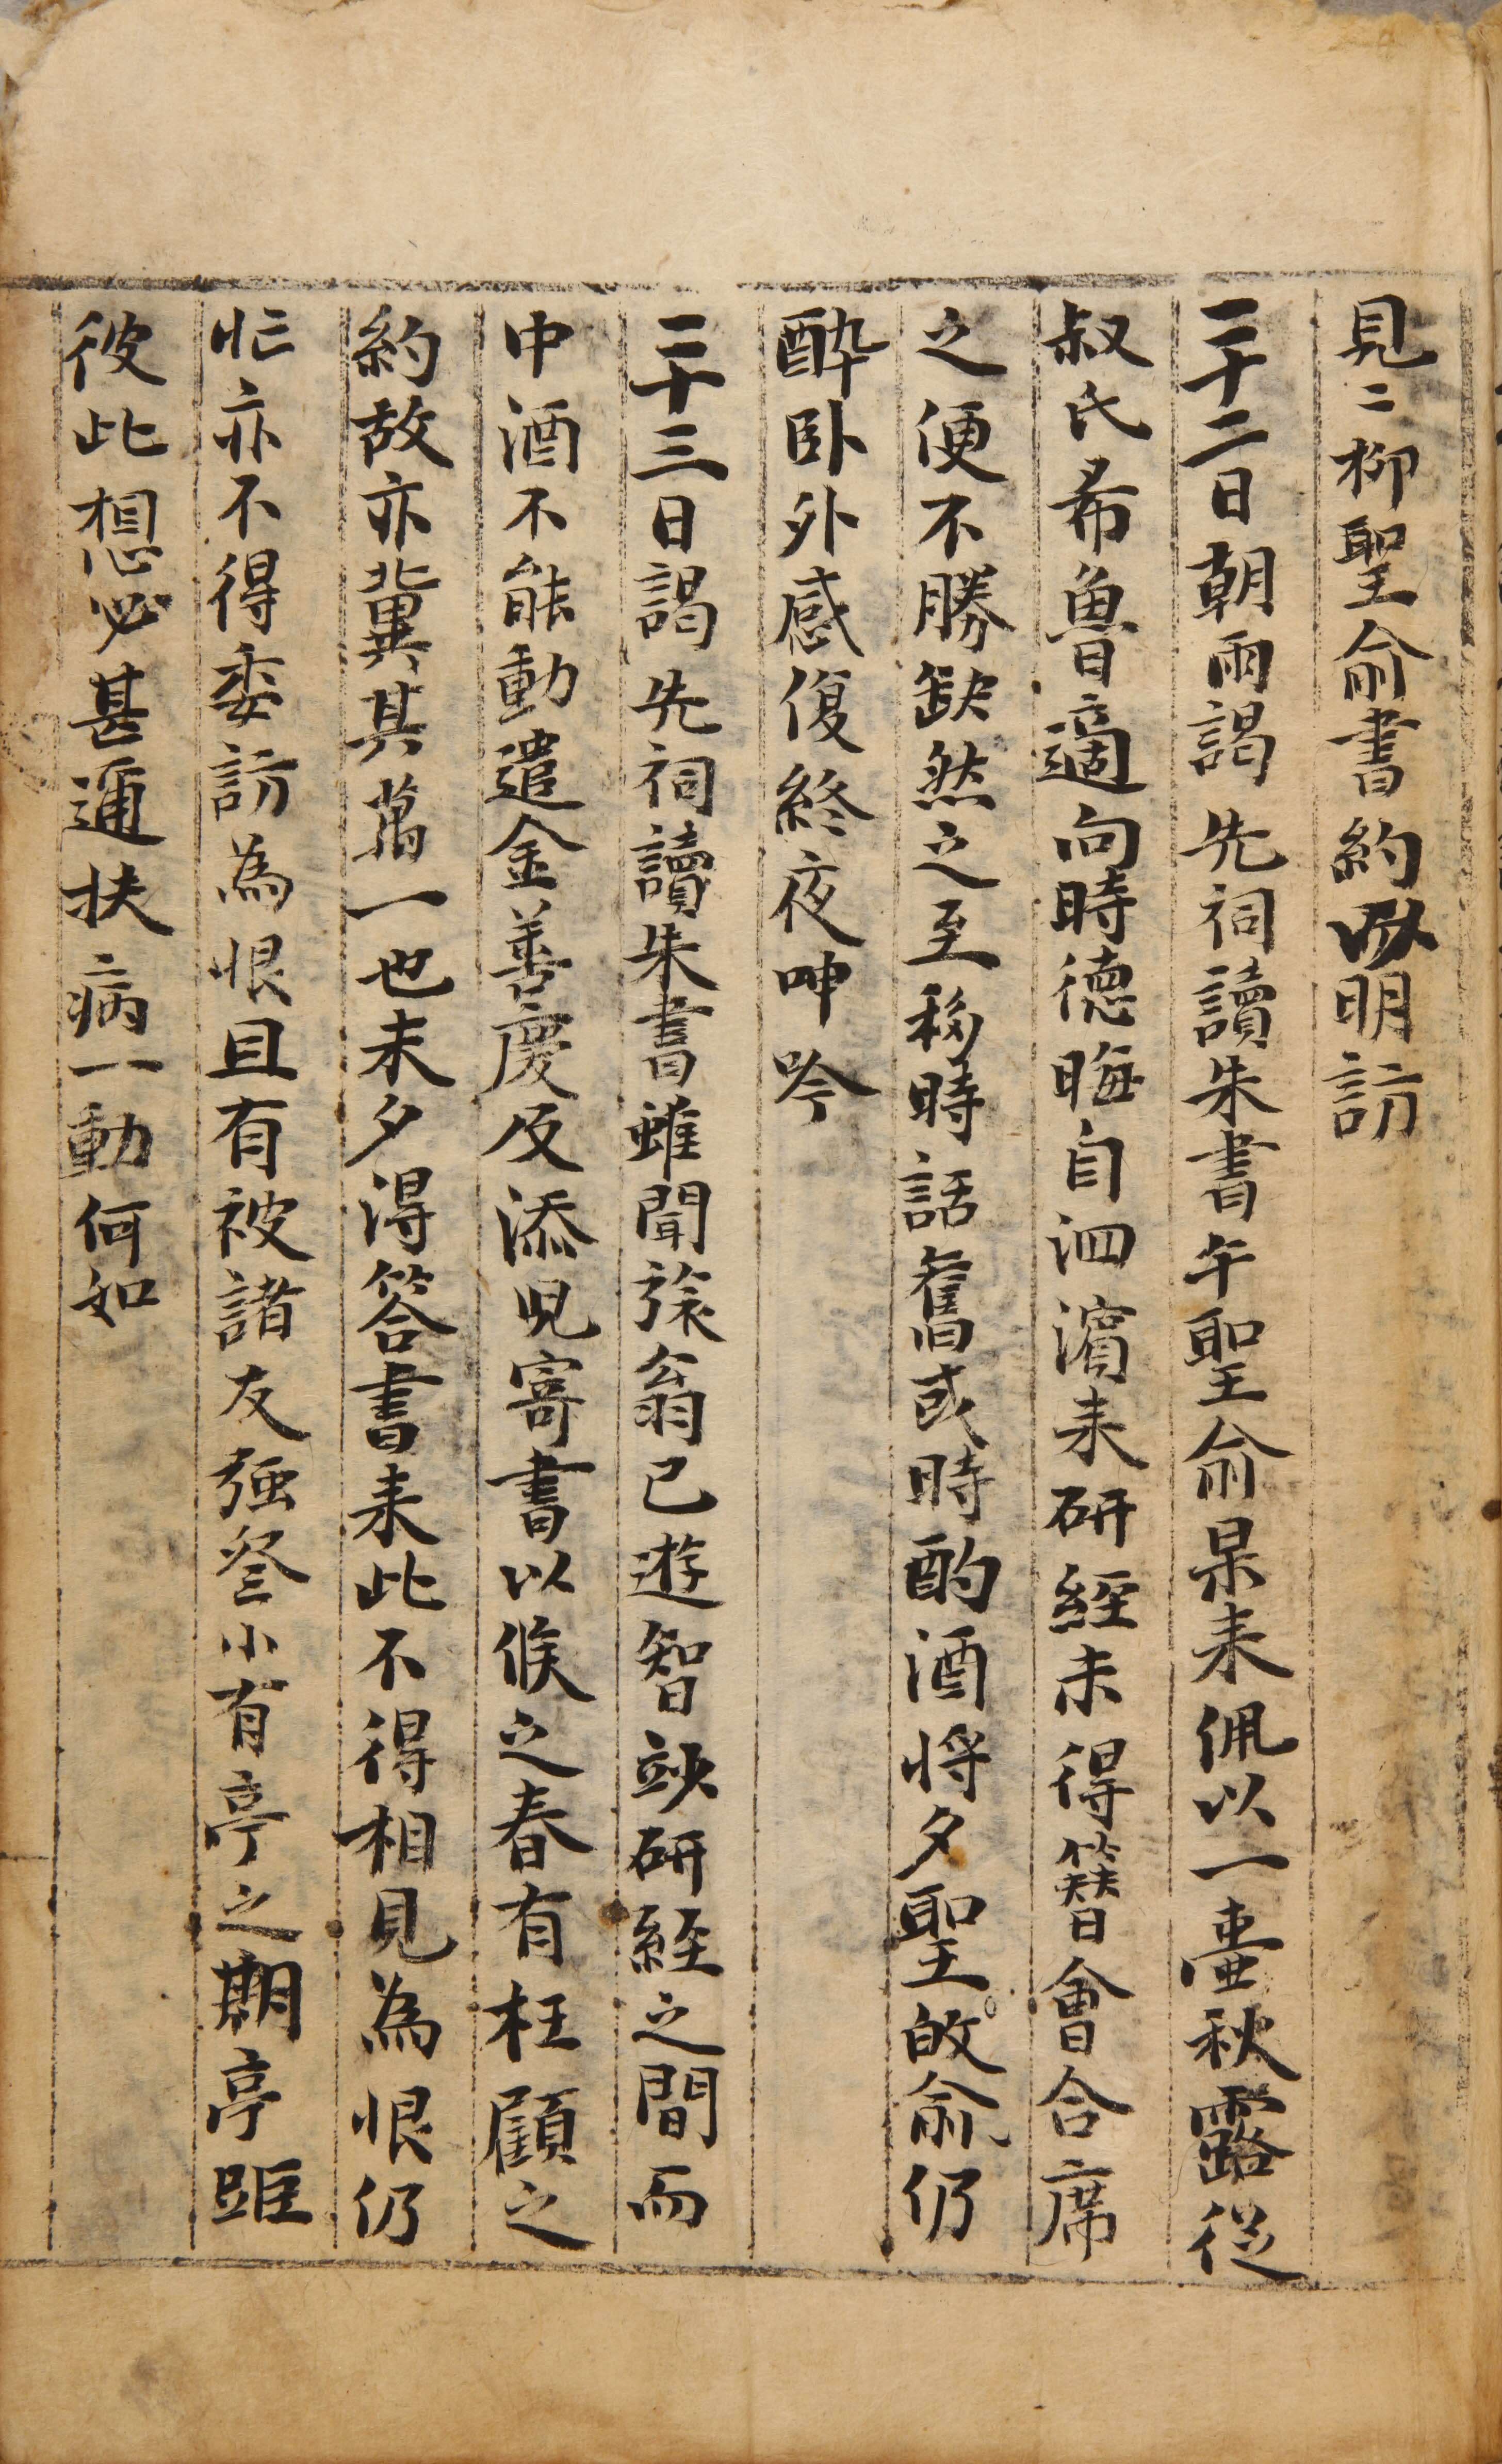 見〻柳聖俞書約以明訪
二十二日朝雨謁先祠讀朱書午聖俞果来佩以一壷秋露從
叔氏希魯適向時德晦自泗濱来研經未得簪會合席
之便不勝缺然之至移時話舊或時酌酒将夕聖俞仍
醉卧外感復終夜呻吟
二十三日謁先祠讀朱書雖聞旅翁已遊智竗研經之間而
中酒不能動遣金善慶及添児寄書以候之春有枉顧之
約故亦冀其萬一也未夕得答書来此不得相見為恨仍
忙亦不得委訪為恨且有被諸友强叅小有亭之期亭距
彼此想必甚邇扶病一動何如